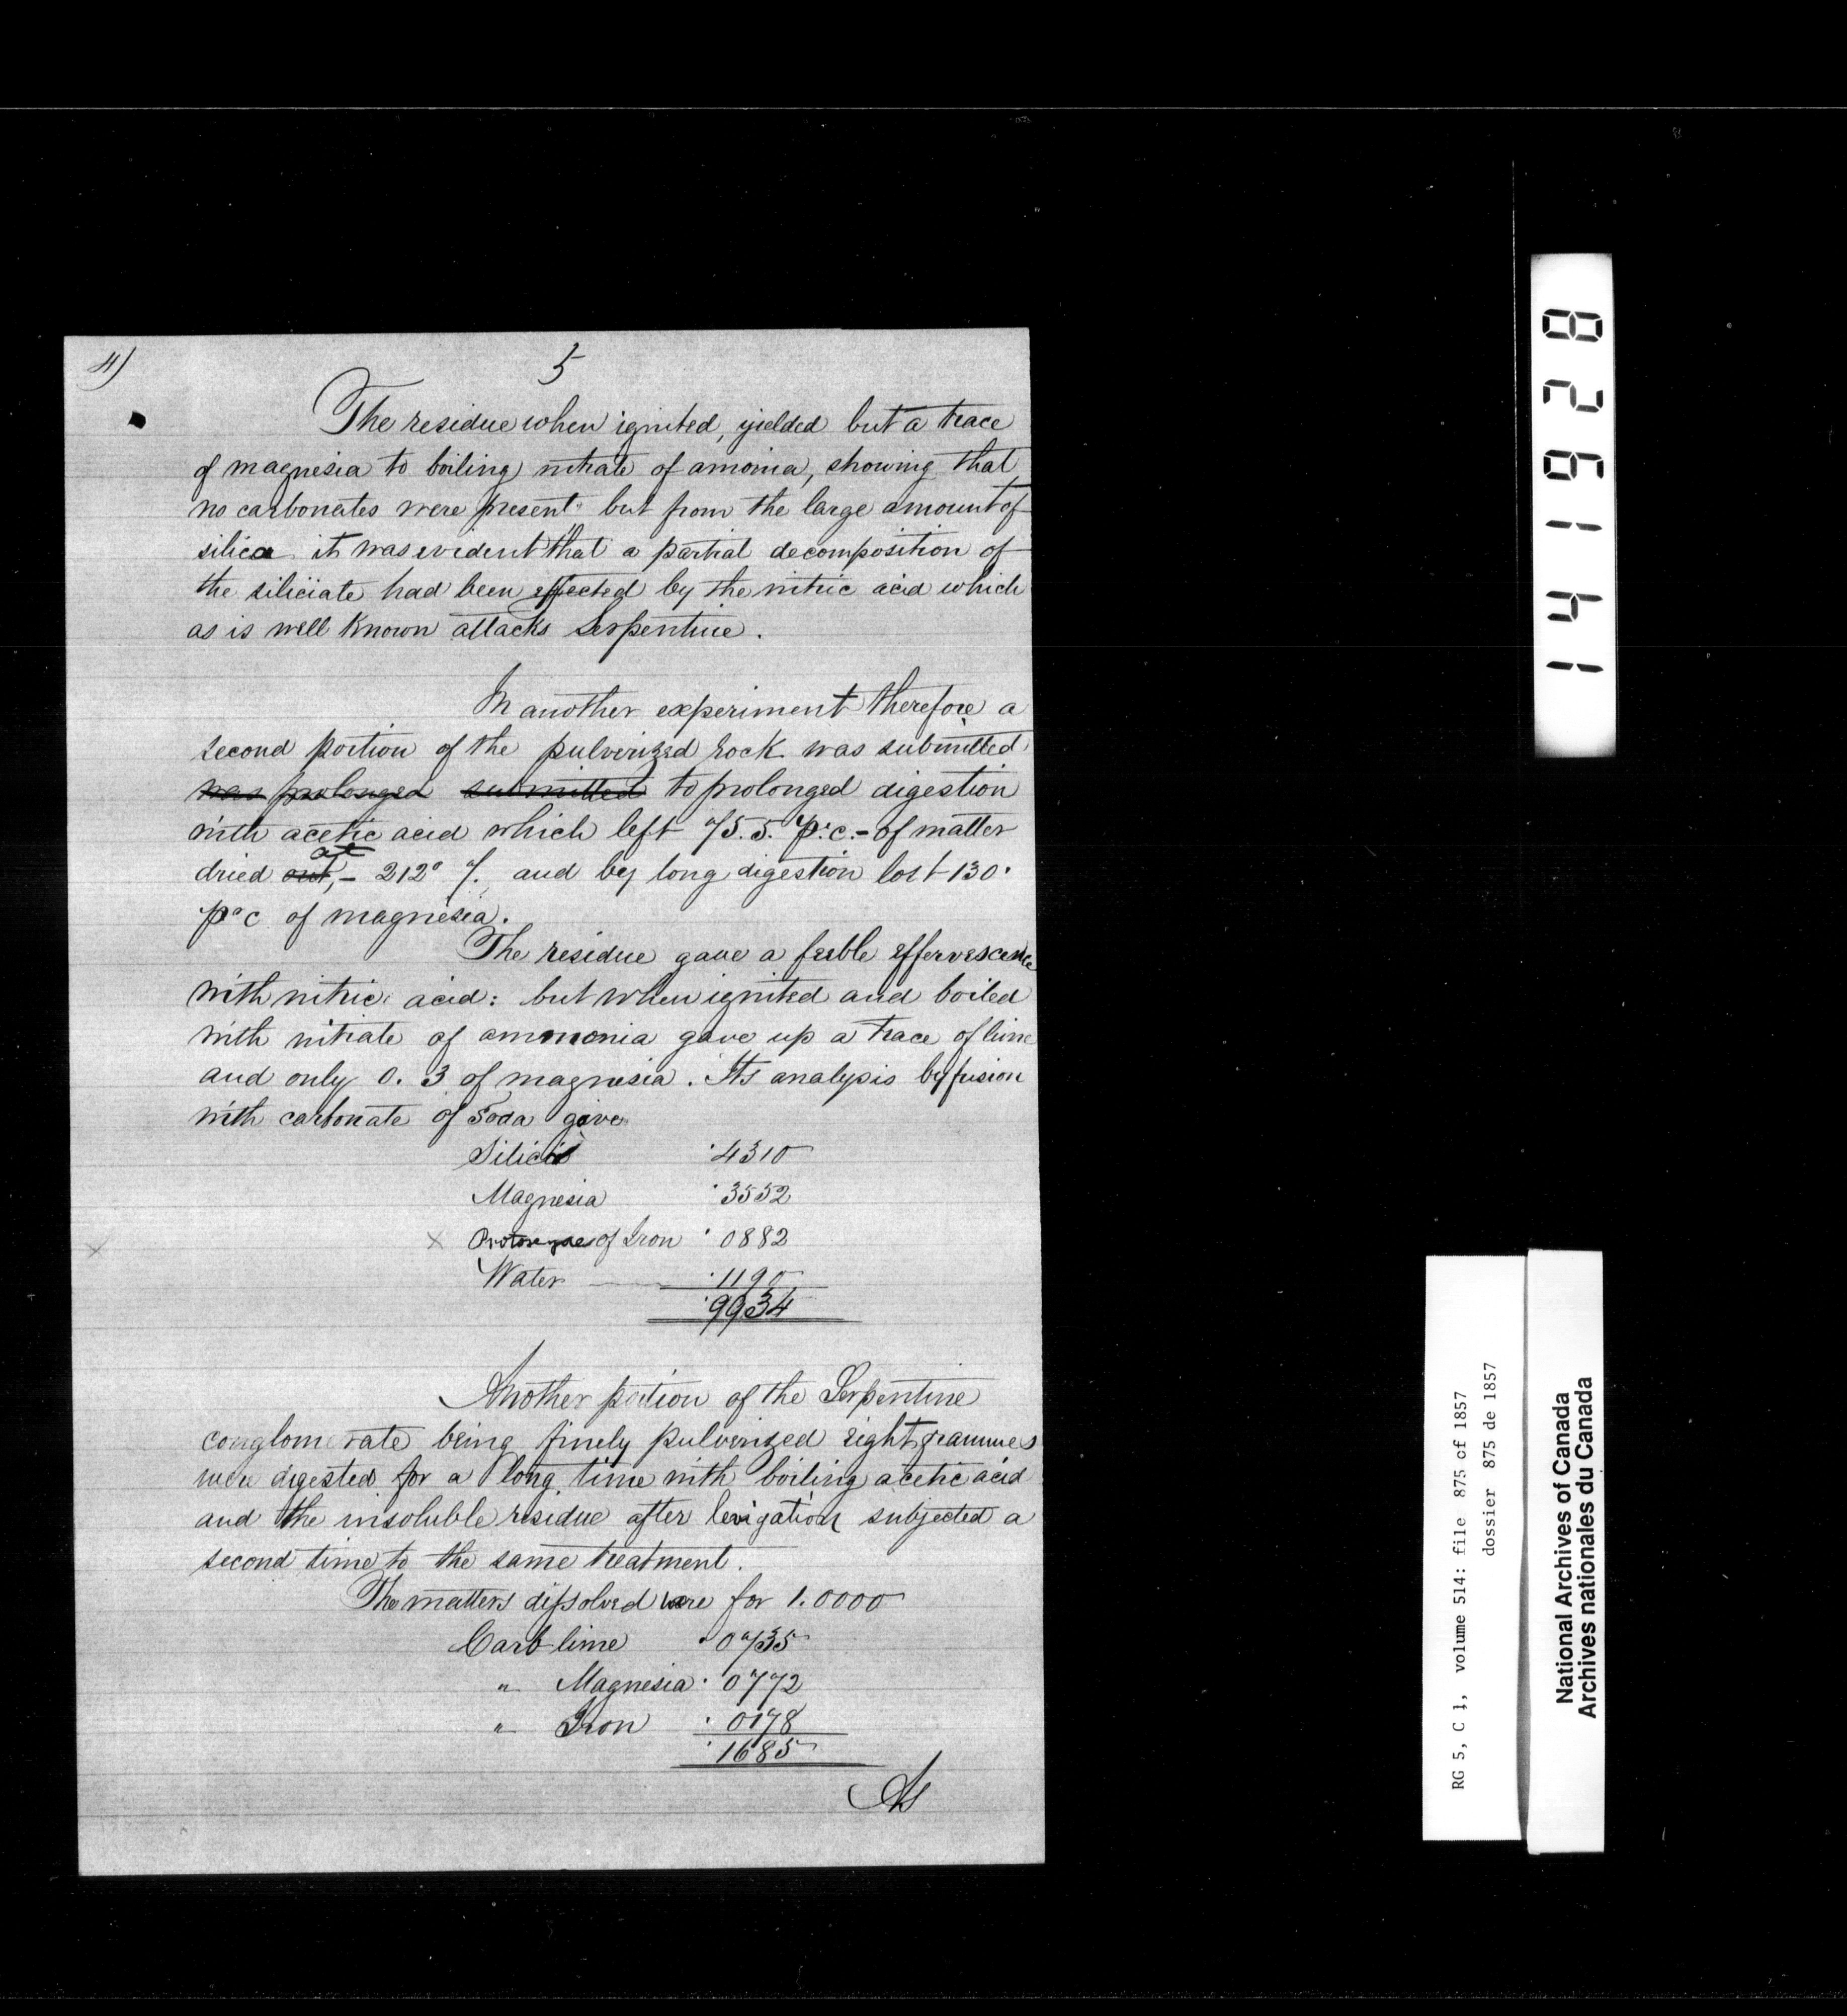 4)
5
The residue when ignited, yielded but a trace
of magnesia to boiling nitrate of amonia, showing that
no carbonates were present but from the large amount of
silica it was evident that a partial decomposition of
the siliciate had been effected by the nitric acid which
as is well known attacks Serpentine.
In another experiment therefore a
second portion of the pulverized rock was submitted
was prolonged submitted to prolonged digestion
with acetic acid which left 75.5. p.c. - of matter
at
dried out, - 212° f. and by long digestion lost 130.
p.c of magnesia.
The residue gave a feeble effervescence
with nitric acid: but when ignited and boiled
with nitrate of ammonia gave up a trace of lime
and only 0. 3 of magnesia. Its analysis by fusion
with carbonate of Soda gave
Silica .4310
Magnesia .3552
x Protoxyde of Iron .0882
x
Water .1190
.9934
Another portion of the Serpentine
conglomerate being finely pulverized eight grammes
were digested for a long time with boiling acetic acid
and the insoluble residue after levigation subjected a
second time to the same treatment.
The matters dissolved were for 1.0000
Carb lime .0735
" Magnesia .0772
" Iron .0178
.1685
As
141928
RG 5, C 1, volume 514: file 875 of 1857
dossier 875 de 1857
National Archives of Canada
Archives nationales du Canada